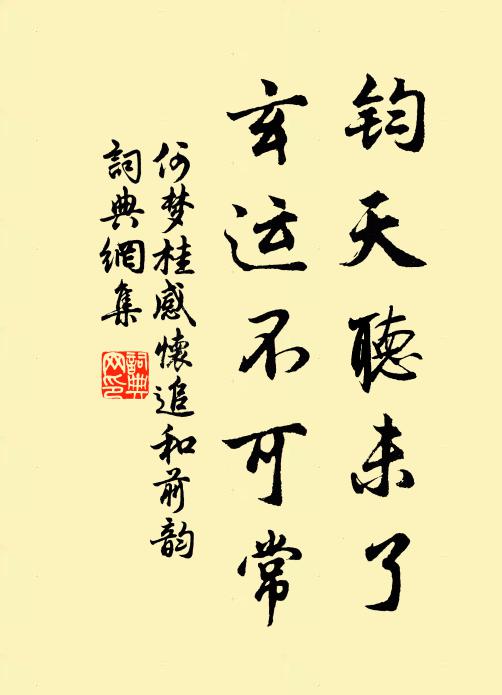 钧天聽未了
玄运不可常
何梦桂感懷追和前韵
詞典網集
詞典
网印